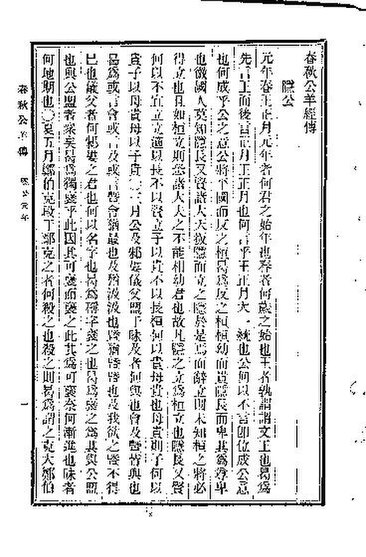 春秋公羊經傳
隱公
元年春王正月元年者何君之始年也春者何歲之始也王者孰謂謂文王也曷爲
先言王而後言正月王正月也何言乎王正月大一統也公何以不言卽位成公意
也何成乎公之意公將平國而反之桓曷爲反之桓桓幼而貴隱長而卑其爲尊卑
也微國人莫知隱長又賢諸大夫扳隱而立之隱於是焉而辭立則未知桓之將必
得立也且如桓立則恐諸大夫之不能相幼君也故凡隱之立爲桓立也隱長又賢
何以不宜立立適以長不以賢立子以貴不以長桓何以貴母貴也母貴則子何以
貴子以母貴母以子貴〇三月公及邾婁儀父盟于眛及者何與也會及曁皆與也
曷爲或言會或言及或言曁會猶最也及猶汲汲也曁猶曁曁也及我欲之曁不得
已也儀父者何邾婁之君也何以名字也曷爲稱字襃之也曷爲襃之爲其與公盟
也與公盟者衆矣曷爲獨襃乎此因其可襃而襃之此其爲可襃奈何漸進也眛者
何地期也〇夏五月鄭伯克段于鄢克之者何殺之也殺之則曷爲謂之克大鄭伯
春秋公羊傳
隱公元年
一